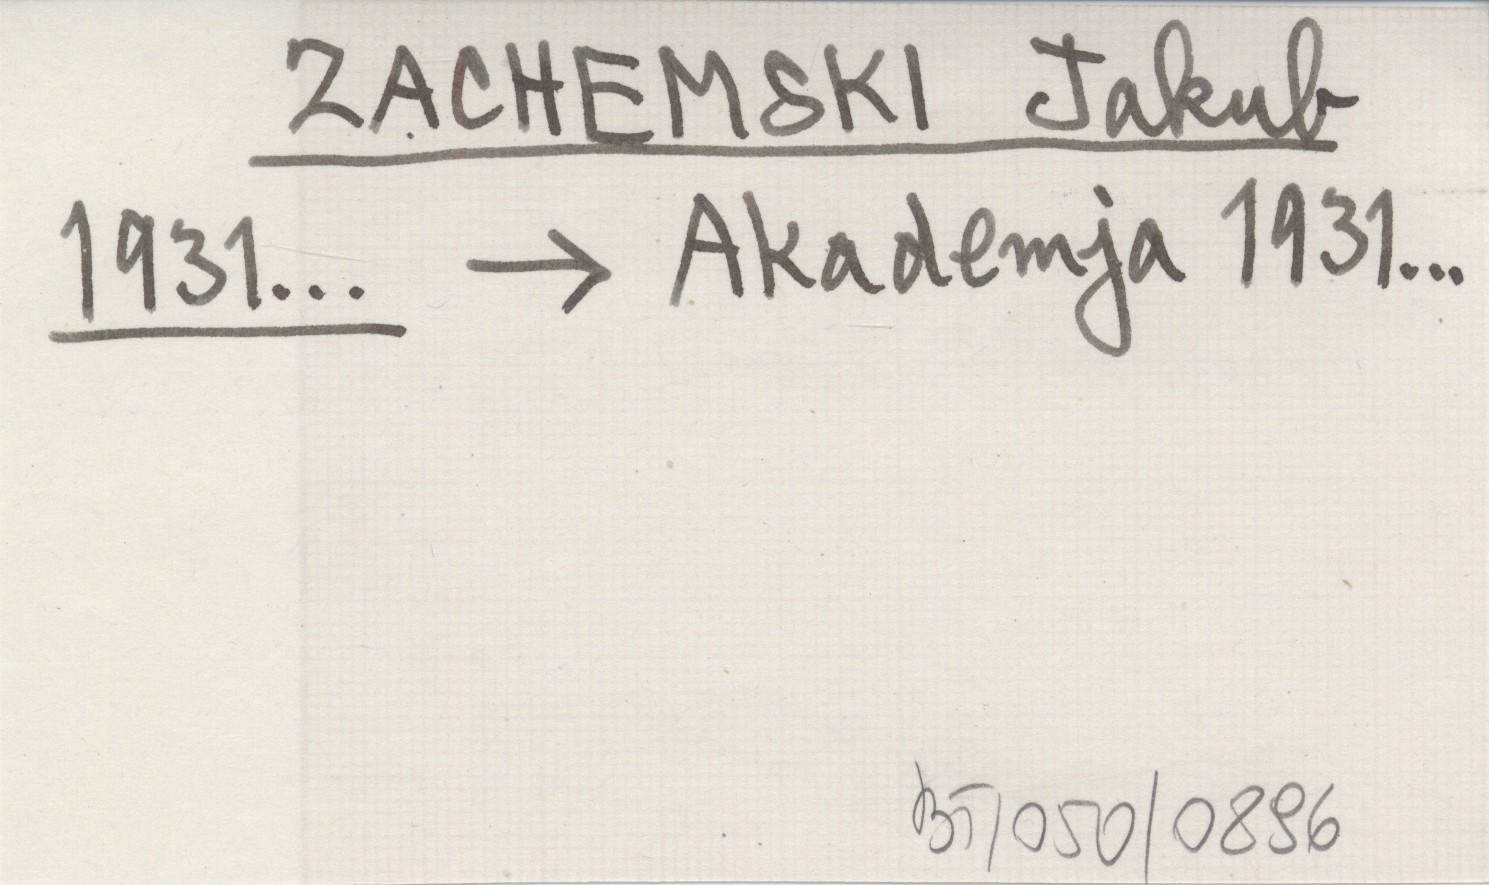 ZACHEMSKI Jakub
1931... → Akademja 1931...
BT/050/0896